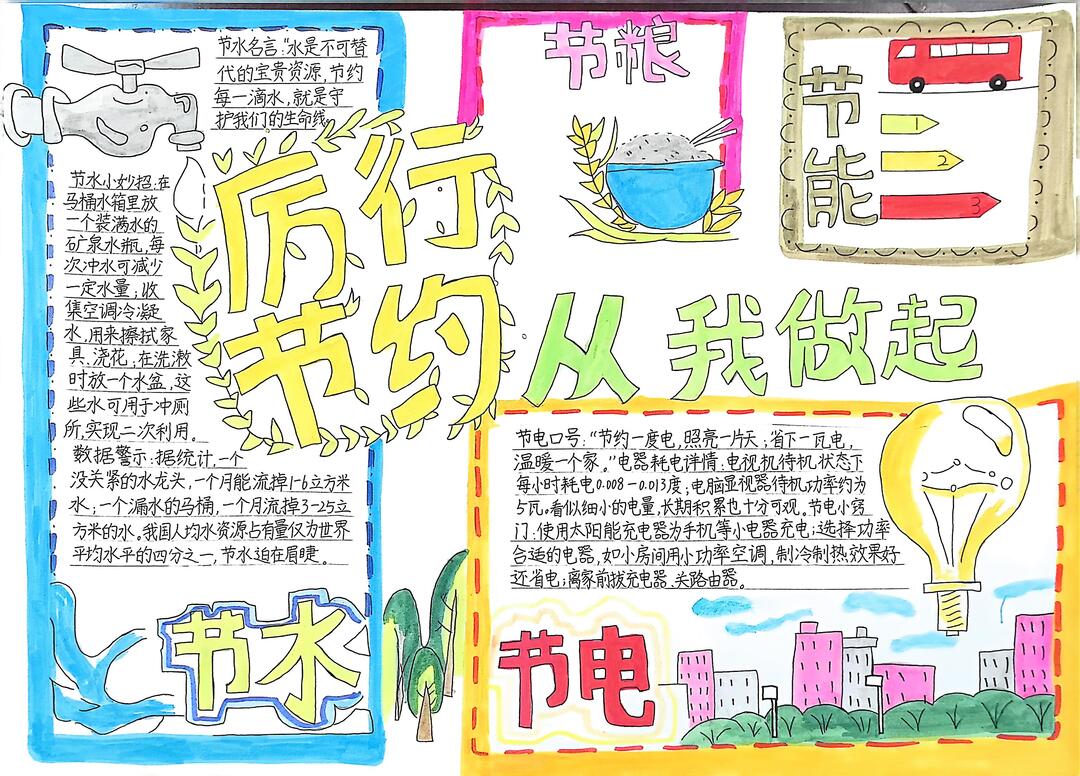 节水名言:“水是不可替
代的宝贵资源,节约
每一滴水,就是守
护我们的生命线。
节水小妙招:在
马桶水箱里放
一个装满水的
矿泉水瓶,每
次冲水可减少
一定水量;收
集空调冷凝
水,用来擦拭家
具、浇花;在洗漱
时放一个水盆,这
些水可用于冲厕
所,实现二次利用。
数据警示:据统计,一个
没关紧的水龙头,一个月能流掉1-6立方米
水;一个漏水的马桶,一个月流掉3-25立
方米的水。我国人均水资源占有量仅为世界
平均水平的四分之一,节水迫在眉睫。
节水
厉行
节约
节粮
节能
2
3
从我做起
节电口号:“节约一度电,照亮一片天;省下一瓦电,
温暖一个家。”电器耗电详情:电视机待机状态下
每小时耗电0.008-0.013度;电脑显视器待机功率约为
5瓦。看似细小的电量,长期积累也十分可观。节电小窍
门:使用太阳能充电器为手机等小电器充电;选择功率
合适的电器,如小房间用小功率空调,制冷制热效果好
还省电;离家前拔充电器、关路由器。
节电